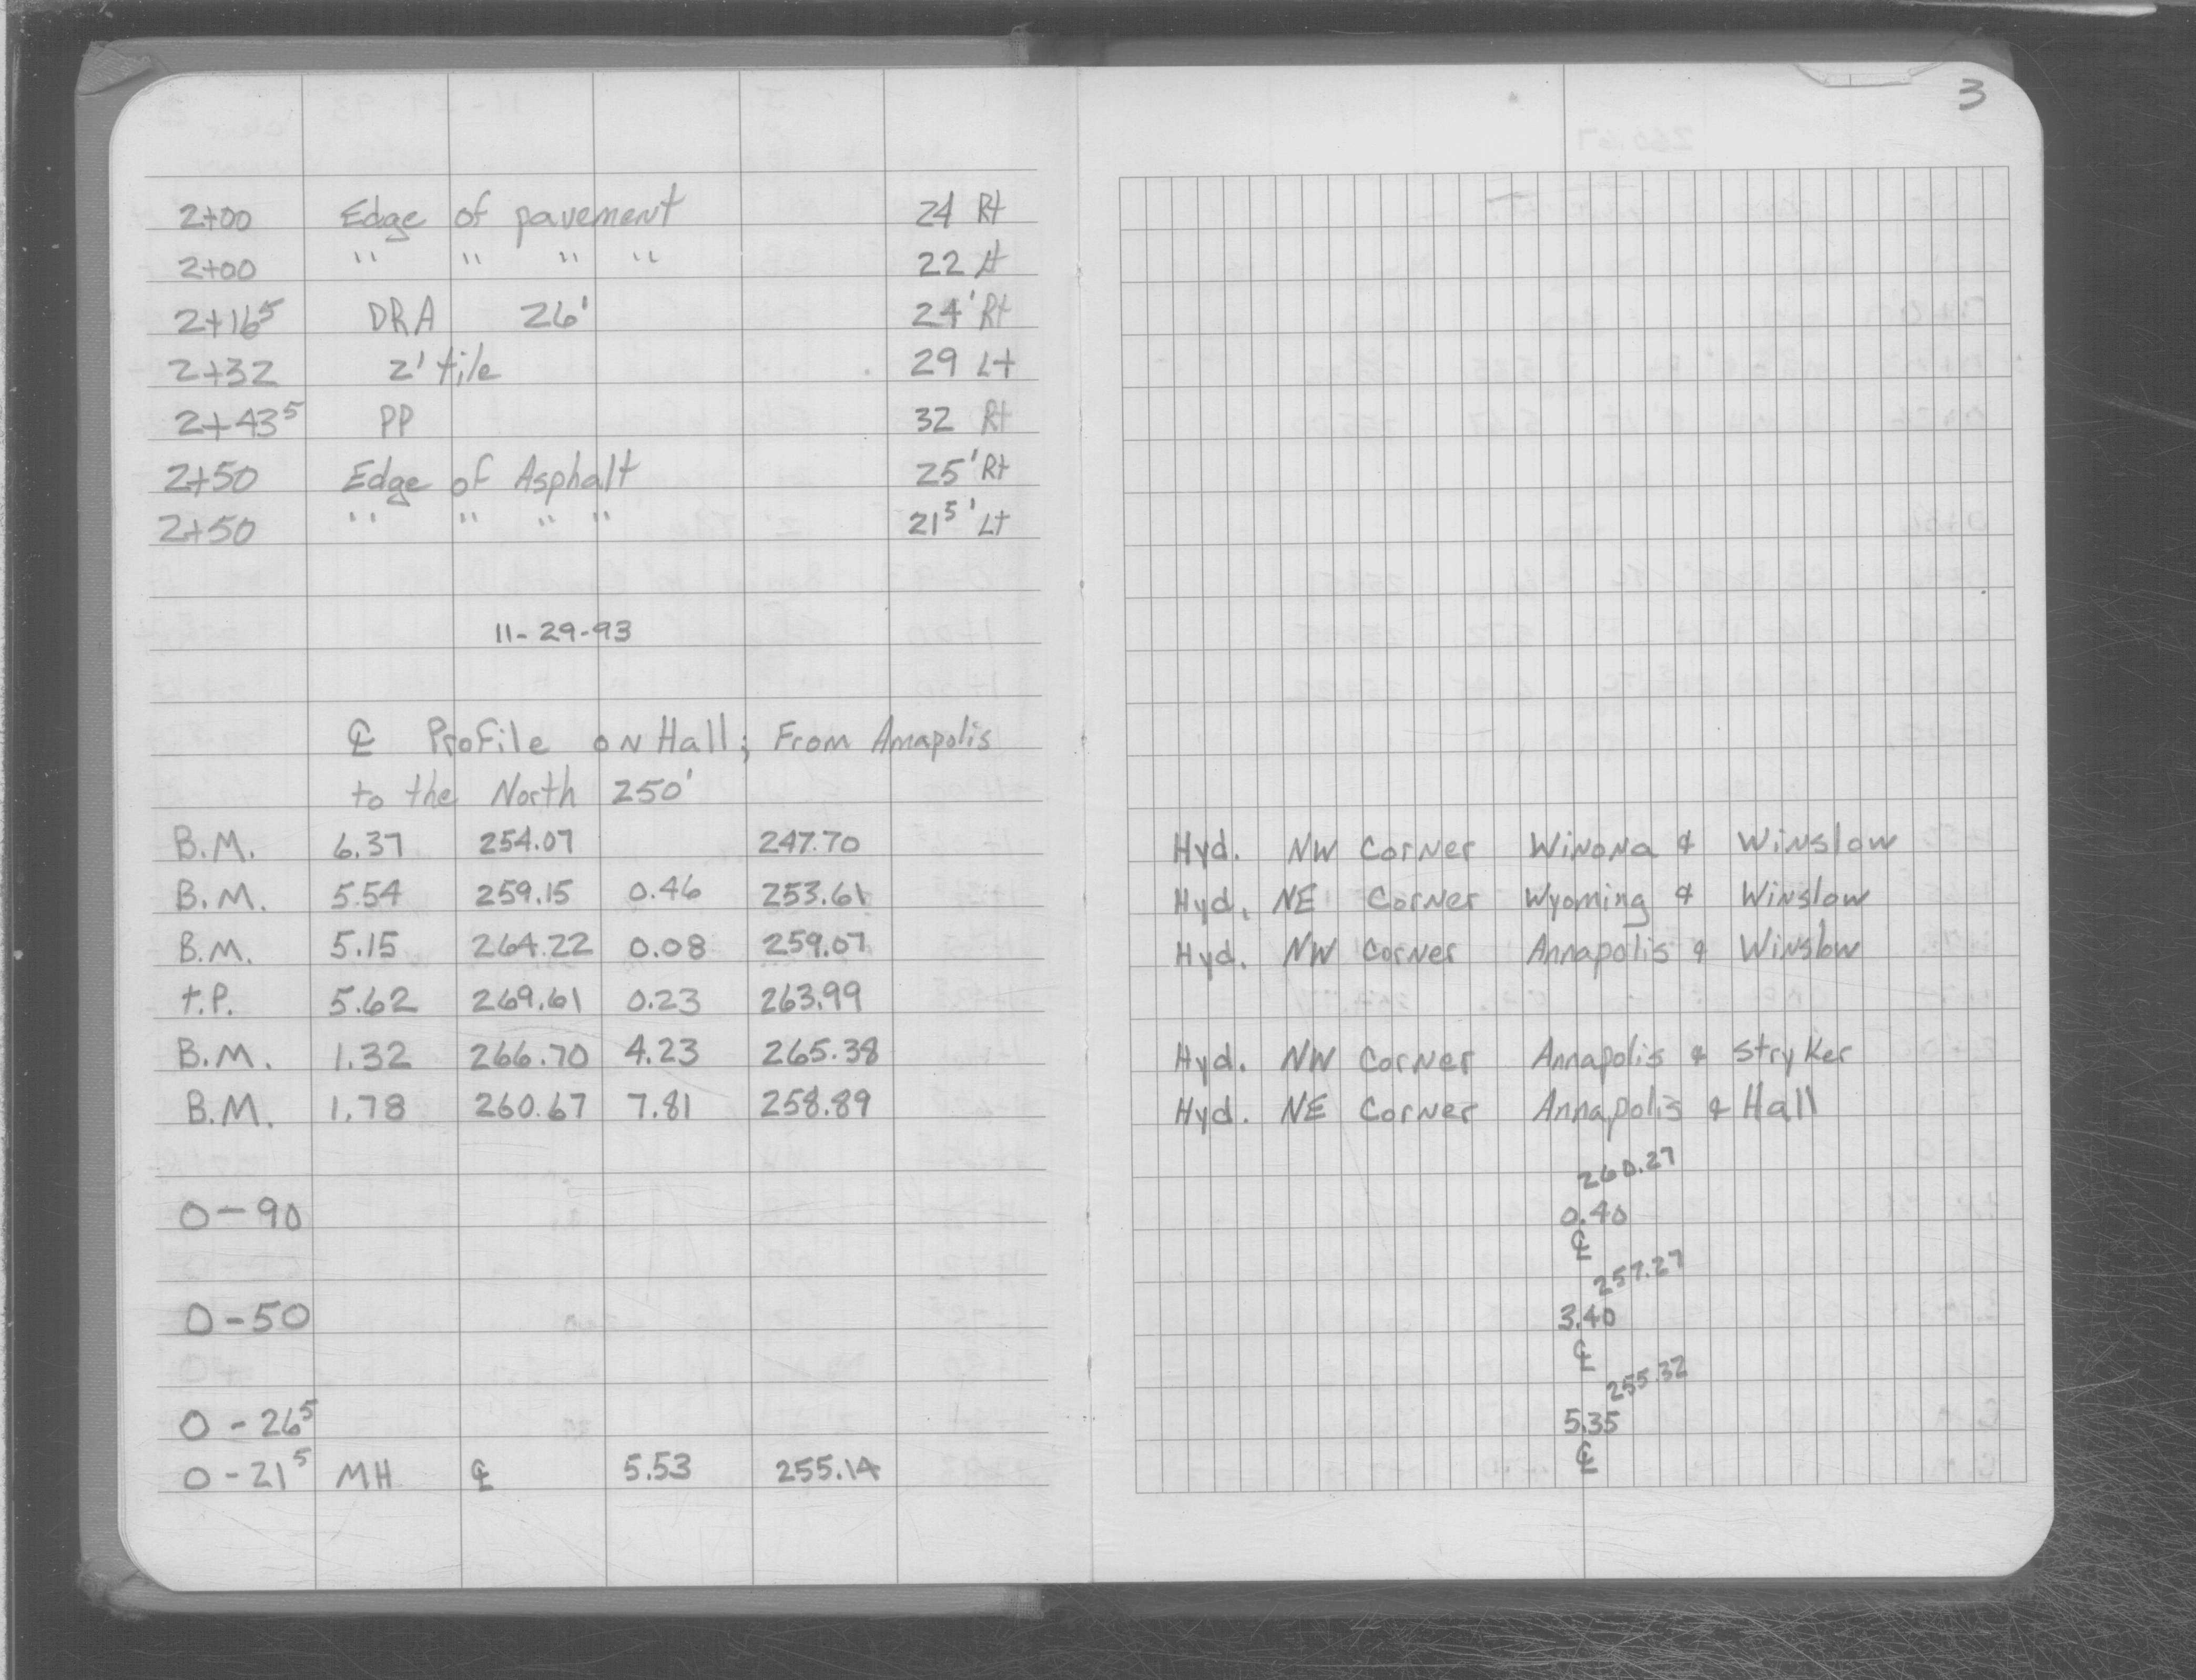 3
2+00 Edge of pavement 24 Rt
2+00 " " " " 22 Lt
2+16⁵ DRA 26' 24' Rt
2+32 2' tile 29 Lt
2+43⁵ PP 32 Rt
2+50 Edge of Asphalt 25' Rt
2+50 " " " " 21⁵' Lt
11-29-93
℄ Profile on Hall; From Annapolis
to the North 250'
B.M. 6.37 254.07 247.70 Hyd. NW Corner Winona & Winslow
B.M. 5.54 259.15 0.46 253.61 Hyd. NE Corner Wyoming & Winslow
B.M. 5.15 264.22 0.08 259.07 Hyd. NW Corner Annapolis & Winslow
T.P. 5.62 269.61 0.23 263.99
B.M. 1.32 266.70 4.23 265.38 Hyd. NW Corner Annapolis & Stryker
B.M. 1.78 260.67 7.81 258.89 Hyd. NE Corner Annapolis & Hall
260.27
0-90 0.40
℄
257.27
0-50 3.40
℄
255.32
0-26⁵ 5.35
0-21⁵ MH ℄ 5.53 255.14 ℄